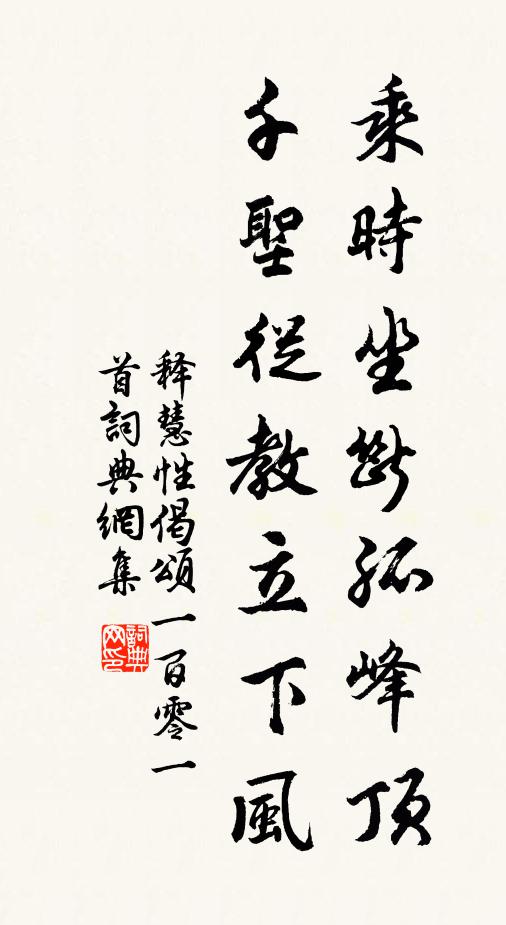 乘時坐斷孤峰頂
千聖從教立下風
释慧性偈頌一百零一
首詞典網集
詞典网印